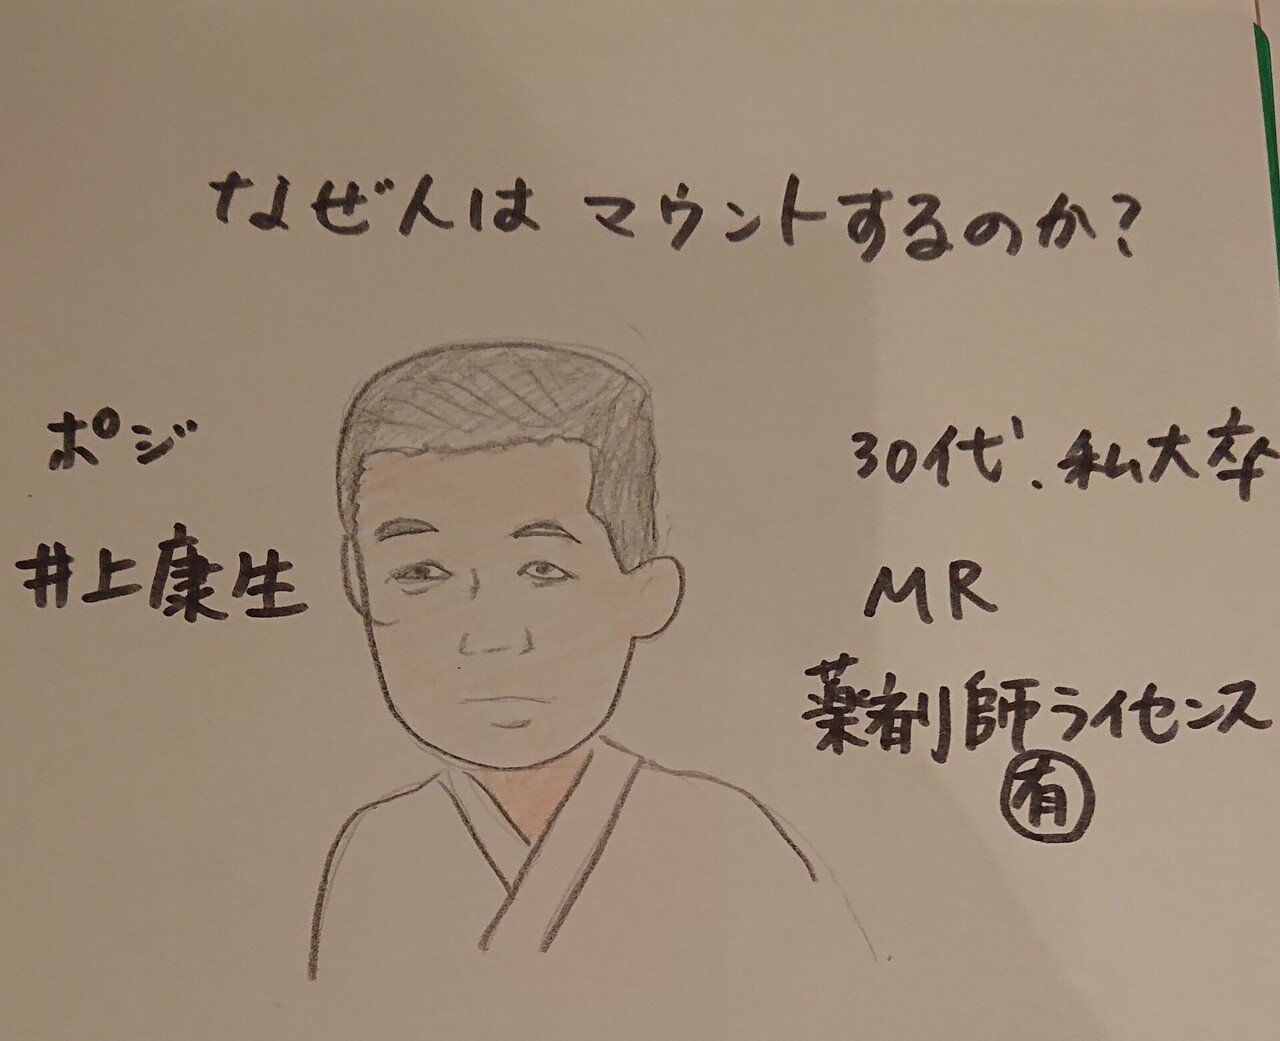 なぜ人は マウントするのか?
ポジ
井上康生
30代、私大卒
MR
薬剤師ライセンス
有